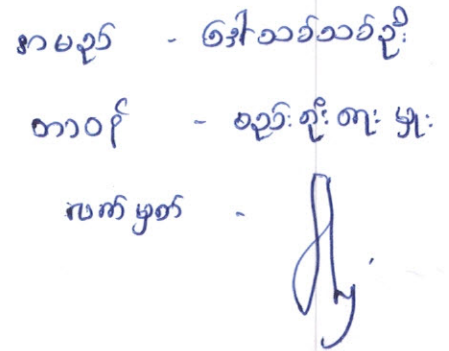 အာမည် - ဒေါ်သစ်သစ်ဦး
တာဝန် - စည်းရုံးရေးမှူး
လက်မှတ် -